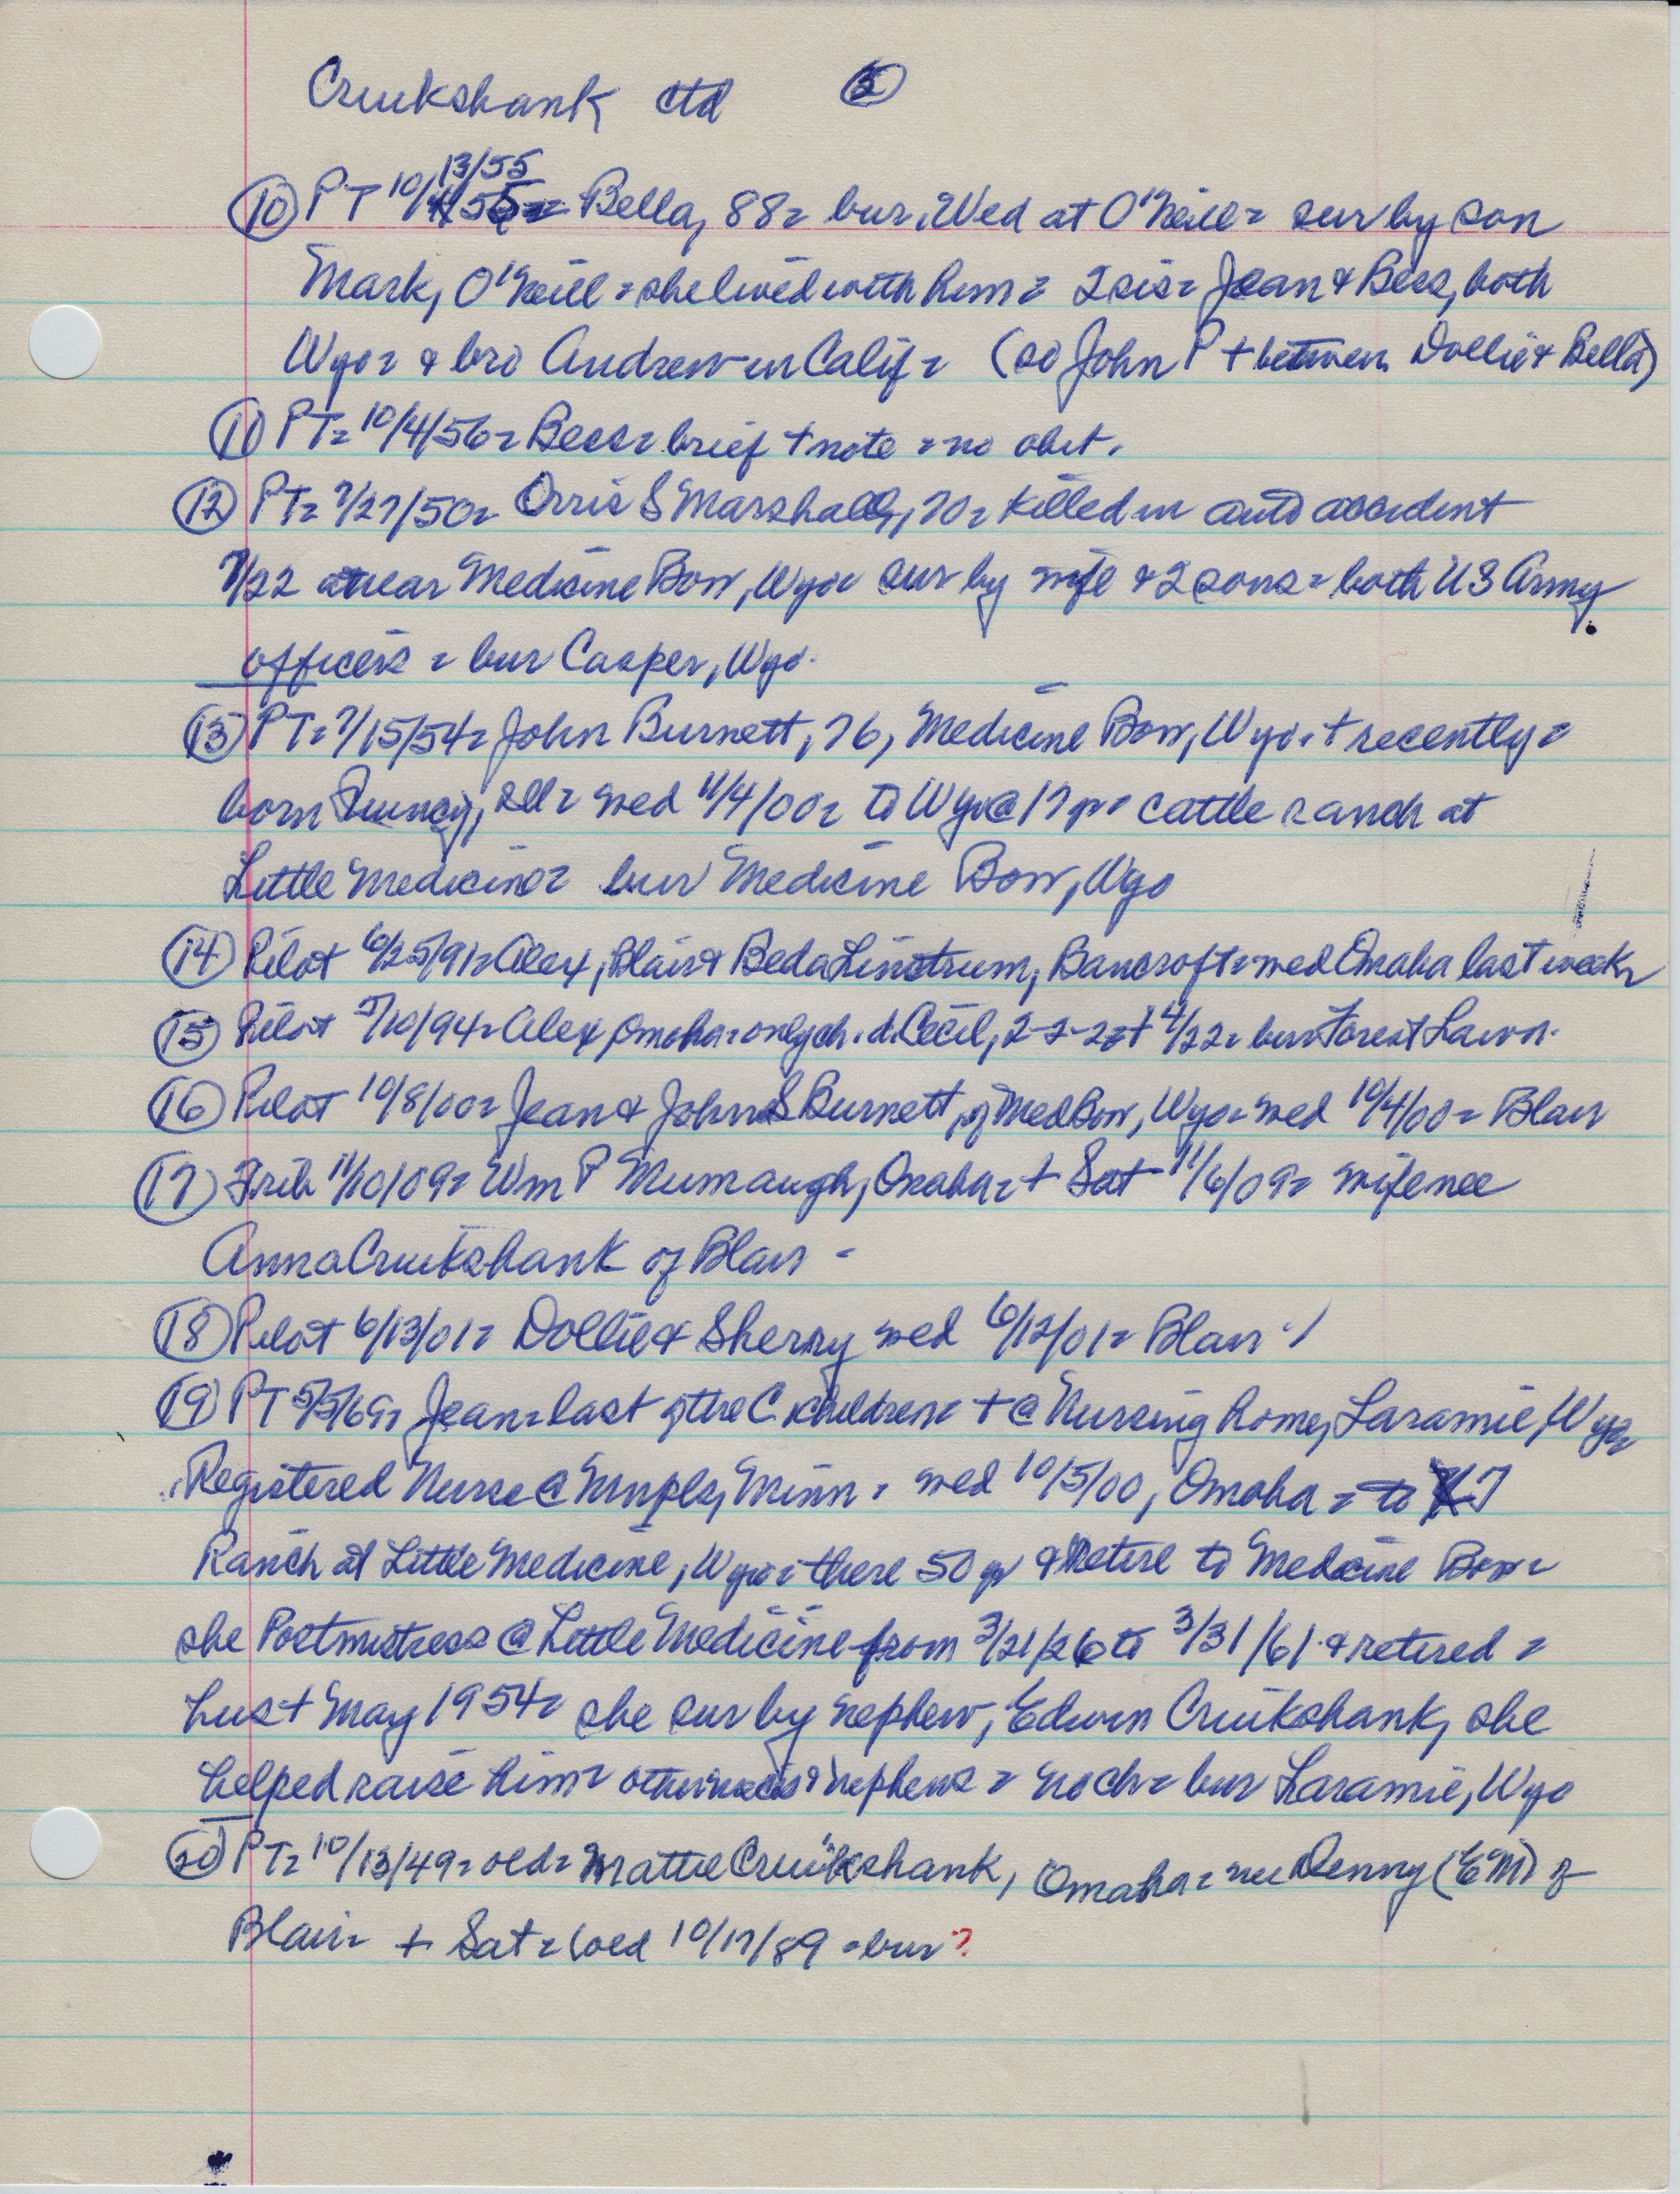 Cruikshank ctd 3
(10) PT 10/13/55 = Bella, 88 = bur. Wed at O'Neill = sur by son
Mark, O'Neill = she lived with him = 2 sis = Jean & Bess, both
Wyo = & bro Andrew in Calif = (so John P + between Dollie & Bella)
(11) PT = 10/4/56 = Bess = brief + note = no obit.
(12) PT = 7/27/50 = Orris S Marshall, 70 = killed in auto accident
7/22 near Medicine Bow, Wyo = sur by wife & 2 sons = both US Army
officers = bur Casper, Wyo.
(13) PT = 7/15/54 = John Burnett, 76, Medicine Bow, Wyo. + recently =
born Quincy, Ill = wed 11/4/00 = to Wyo @ 17 yr = cattle ranch at
Little Medicine = bur Medicine Bow, Wyo
(14) Pilot 6/25/91 = Alex, Blair & Beda Linstrum, Bancroft = wed Omaha last week =
(15) Pilot 5/10/94 = Alex, Omaha = only ch. d. Cecil, 2-2-2 = + 4/22 = bur Forest Lawn.
(16) Pilot 10/8/00 = Jean & John S Burnett, of Med Bow, Wyo = wed 10/4/00 = Blair
(17) Trib 11/10/09 = Wm P Mumaugh, Omaha = + Sat 11/6/09 = wife nee
Anna Cruikshank of Blair -
(18) Pilot 6/13/01 = Dollie & Sherry wed 6/12/01 = Blair
(19) PT 5/5/69 = Jean = last of the C children = + @ Nursing home, Laramie, Wyo =
Registered Nurse @ Mnpls, Minn = wed 10/5/00, Omaha = to 7
Ranch at Little Medicine, Wyo = there 50 yr & retire to Medicine Bow =
she Postmistress @ Little Medicine from 3/21/26 to 3/31/61 & retired =
hus + May 1954 = she sur by nephew, Edwin Cruikshank, she
helped raise him = other nieces & nephews = no ch = bur Laramie, Wyo
(20) PT = 10/13/49 = old = Mattie Cruikshank, Omaha = nee Denny (EM) of
Blair = + Sat = wed 10/17/89 = bur ?